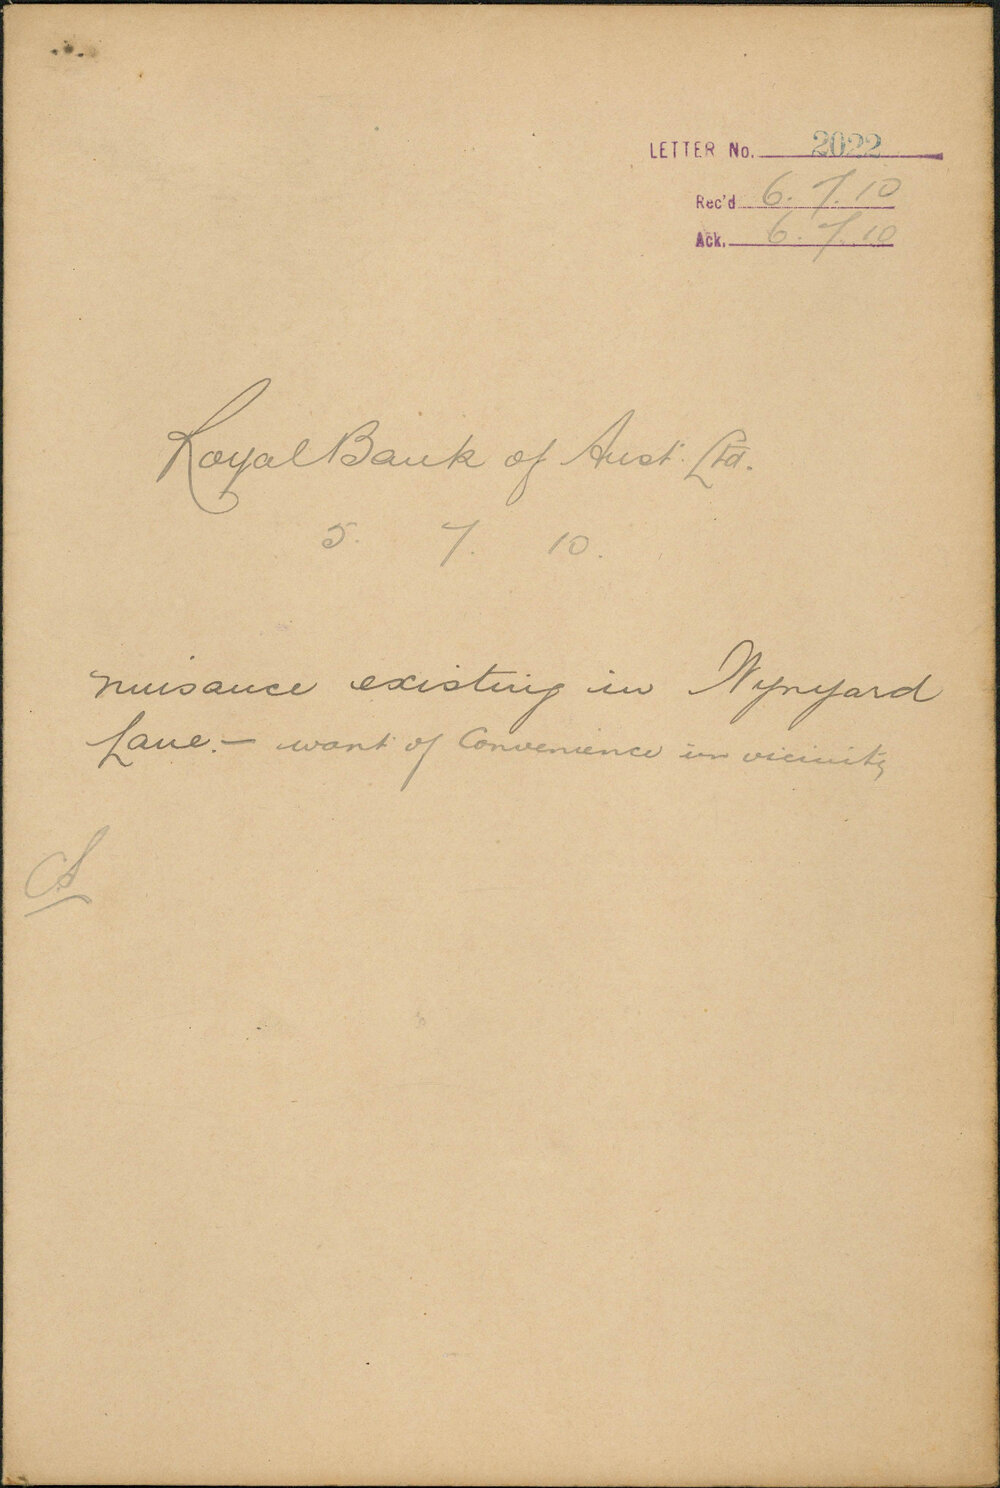 LETTER No. 2022
Rec'd 6. 7. 10
Ack. 6. 7. 10
Royal Bank of Aust. Ltd.
5. 7. 10.
nuisance existing in Wynyard
Lane. — want of Convenience in vicinity